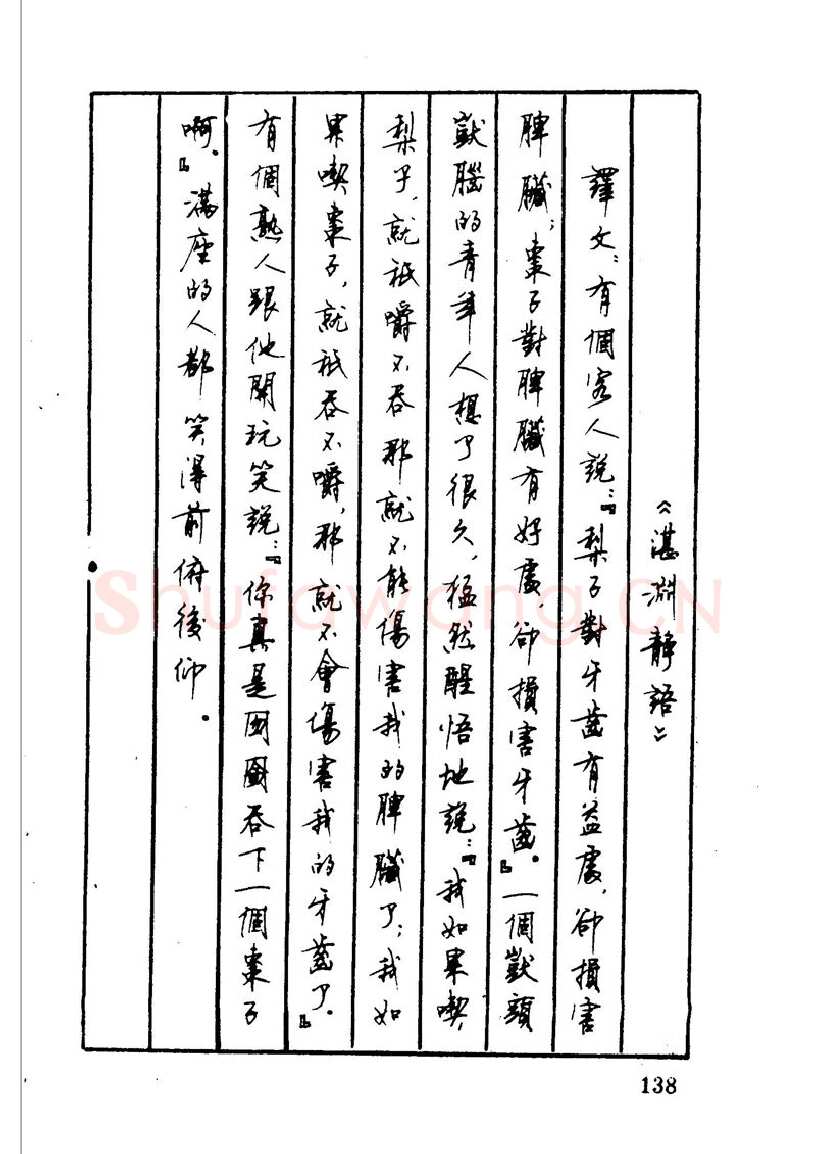 《湛淵靜語》
譯文：有個客人說：『梨子對牙齒有益處，卻損害
脾臟；棗子對脾臟有好處，卻損害牙齒。』一個獃頭
獃腦的青年人想了很久，猛然醒悟地說：『我如果喫
梨子，就祇嚼不吞那就不能傷害我的脾臟了；我如
果喫棗子，就祇吞不嚼，那就不會傷害我的牙齒了。』
有個熟人跟他開玩笑說：『你真是囫圇吞下一個棗子
啊。』滿座的人都笑得前俯後仰。
Shufawang.CN
138